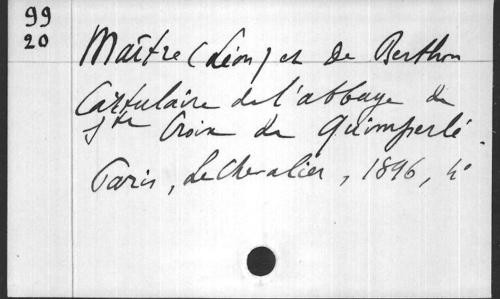 99
20
Maître (Léon) et De Berthou
Cartulaire de l'abbaye de
Ste Croix de Quimperlé.
Paris, Le Chevalier, 1896, 4°